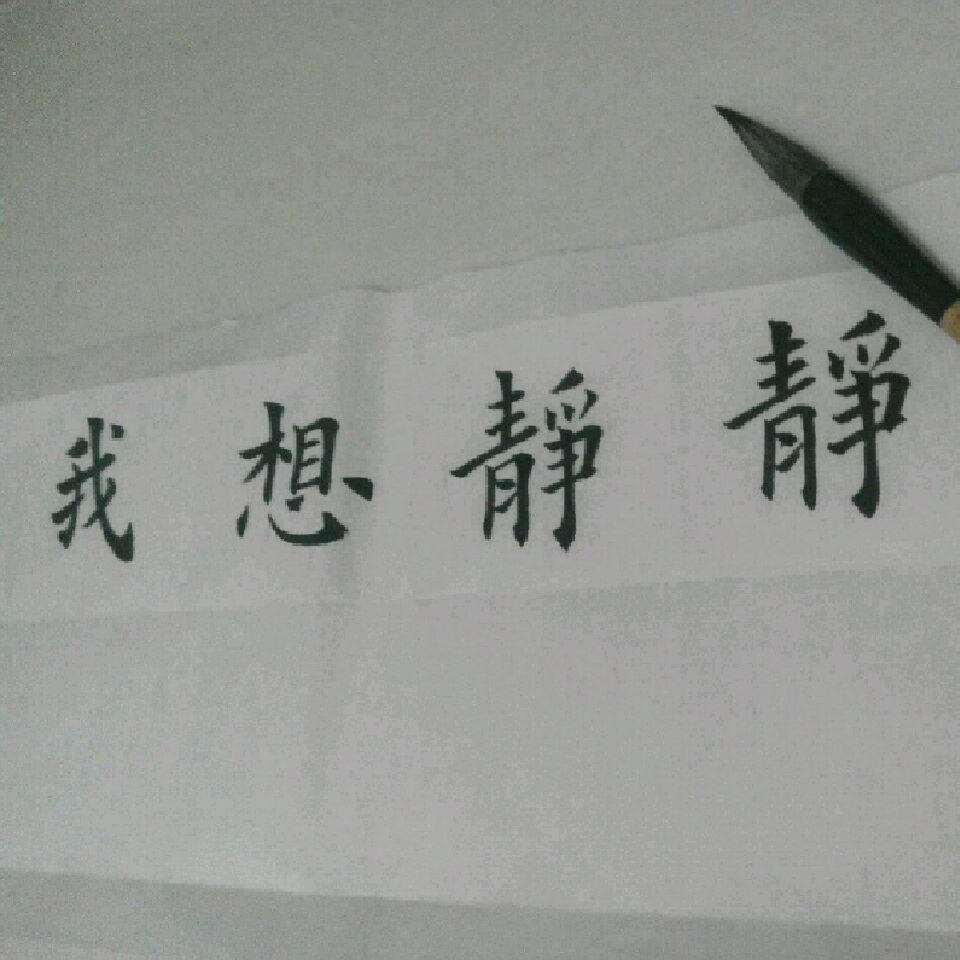 我想靜靜